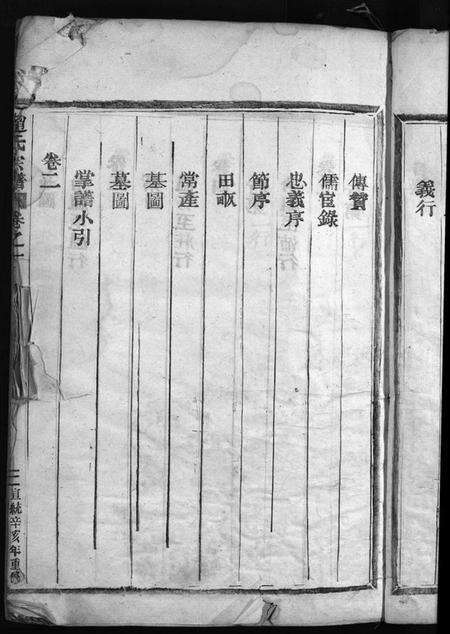 義行
傳贊
儒宦錄
忠義序
節序
田畝
常產
基圖
墓圖
掌譜小引
卷二
氏宗譜 卷之一
宣統辛亥年重修